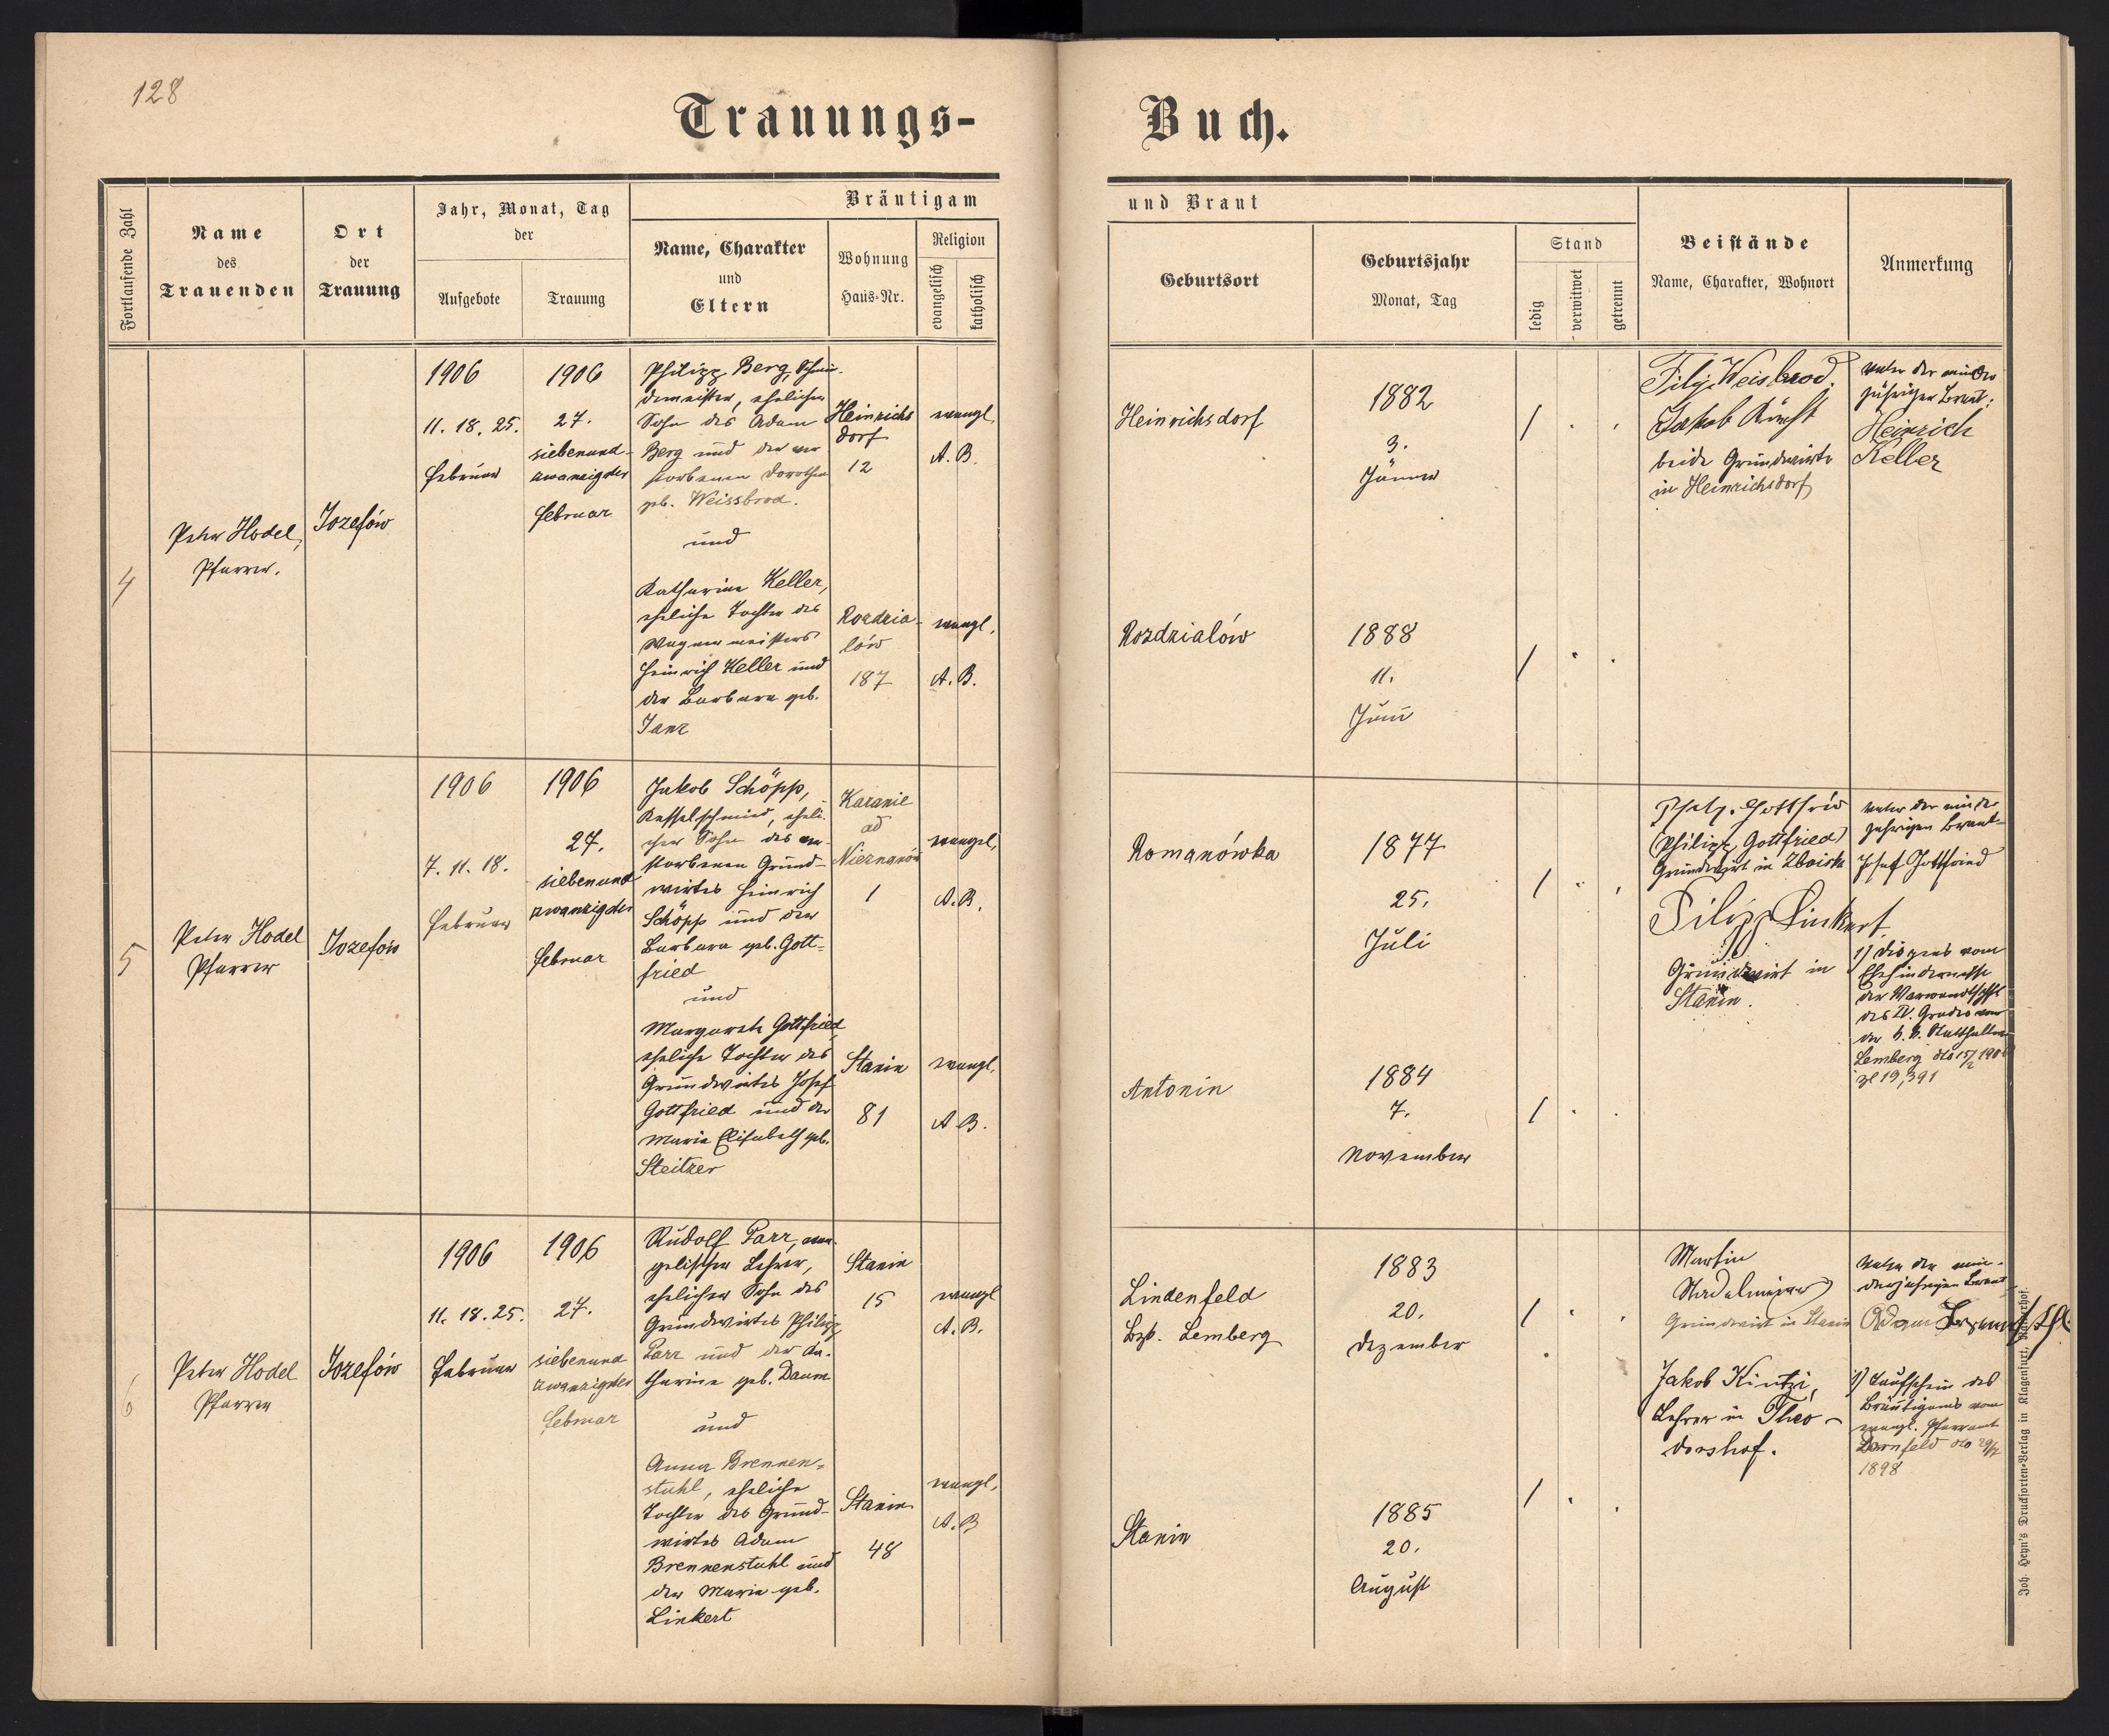 128
Trauungs-
Buch.
Fortlaufende Zahl
Name
des
Trauenden
Ort
der
Trauung
Jahr, Monat, Tag
der
Aufgebote
Trauung
Bräutigam
Name, Charakter
und
Eltern
Wohnung
Haus-Nr.
Religion
evangelisch
katholisch
und Braut
Geburtsort
Geburtsjahr
Monat, Tag
Stand
ledig
verwitwet
getrennt
Beistände
Name, Charakter, Wohnort
Anmerkung
4
Peter Hodel,
Pfarrer.
Jozefów
1906
11. 18. 25.
Februar
1906
27.
siebenund-
zwanzigster
Februar
Philipp Berg, Schmie-
demeister, ehelicher
Sohn des Adam
Berg und der ver
storbenen Dorothea
geb. Weissbrod.
und
Katharine Keller,
eheliche Tochter des
Wagnermeisters
Heinrich Keller und
der Barbara geb.
Janz
Heinrichs
dorf
12
evangl.
A. B.
Rozdzia-
lów
187
evangl.
A. B.
Heinrichsdorf
1882
3.
Jänner
Rozdzialów
1888
11.
Juni
Filip Weisbrod.
Jakob
beide Grundwirte
in Heinrichsdorf
Vater der minder
jährigen Braut:
Heinrich
Keller
5
Peter Hodel
Pfarrer
Jozefów
1906
7. 11. 18.
Februar
1906
27.
siebenund
zwanzigster
Februar
Jakob Schöpp,
Kesselschmied, eheli-
cher Sohn des ver-
storbenen Grund-
wirtes Heinrich
Schöpp und der
Barbara geb. Gott-
fried
und
Margarete Gottfried
eheliche Tochter des
Grundwirtes Josef
Gottfried und der
Marie Elisabeth geb.
Steitzer
Karanie
ad
Nieznanów
1
evangel.
A. B.
Stanin
81
evangl.
A. B.
Romanówka
1877
25.
Juli
Antonin
1884
7.
November
Gottfrid
(Philipp Gottfried)
Grundwirt in Zboiska
Filipp Linkert
Grundwirt in
Stanin.
Vater der minder
jährigen Braut
Josef Gottfried
1) Dispens vom
Ehehindernisse
der Verwandtschaft
des IV. Grades von
der k. k. Statthalterei
Lemberg dto 15/2 1906
zl 19,391
6
Peter Hodel
Pfarrer
Jozefów
1906
11. 18. 25.
Februar
1906
27.
siebenund
zwanzigster
Februar
Rudolf Parr, evan-
gelischer Lehrer,
ehelicher Sohn des
Grundwirtes Philipp
Parr und der Ka-
tharine geb. Daum
und
Anna Brennen-
stuhl, eheliche
Tochter des Grund-
wirtes Adam
Brennenstuhl und
der Marie geb.
Linkert
Stanin
15
evangl
A. B.
Stanin
48
evangl.
A. B
Lindenfeld
Bzk. Lemberg
1883
20.
Dezember
Stanin
1885
20.
August
Martin
Nadelmeier
Grundwirt in Stanin
Jakob Kintzi,
Lehrer in Theo-
dorshof.
Vater der min-
derjährigen Braut
Adam
1) Taufschein des
Bräutigams vom
evangl. Pfarramt
Dornfeld dto
1898
Joh. Heyn's Drucksorten-Verlag in Klagenfurt,